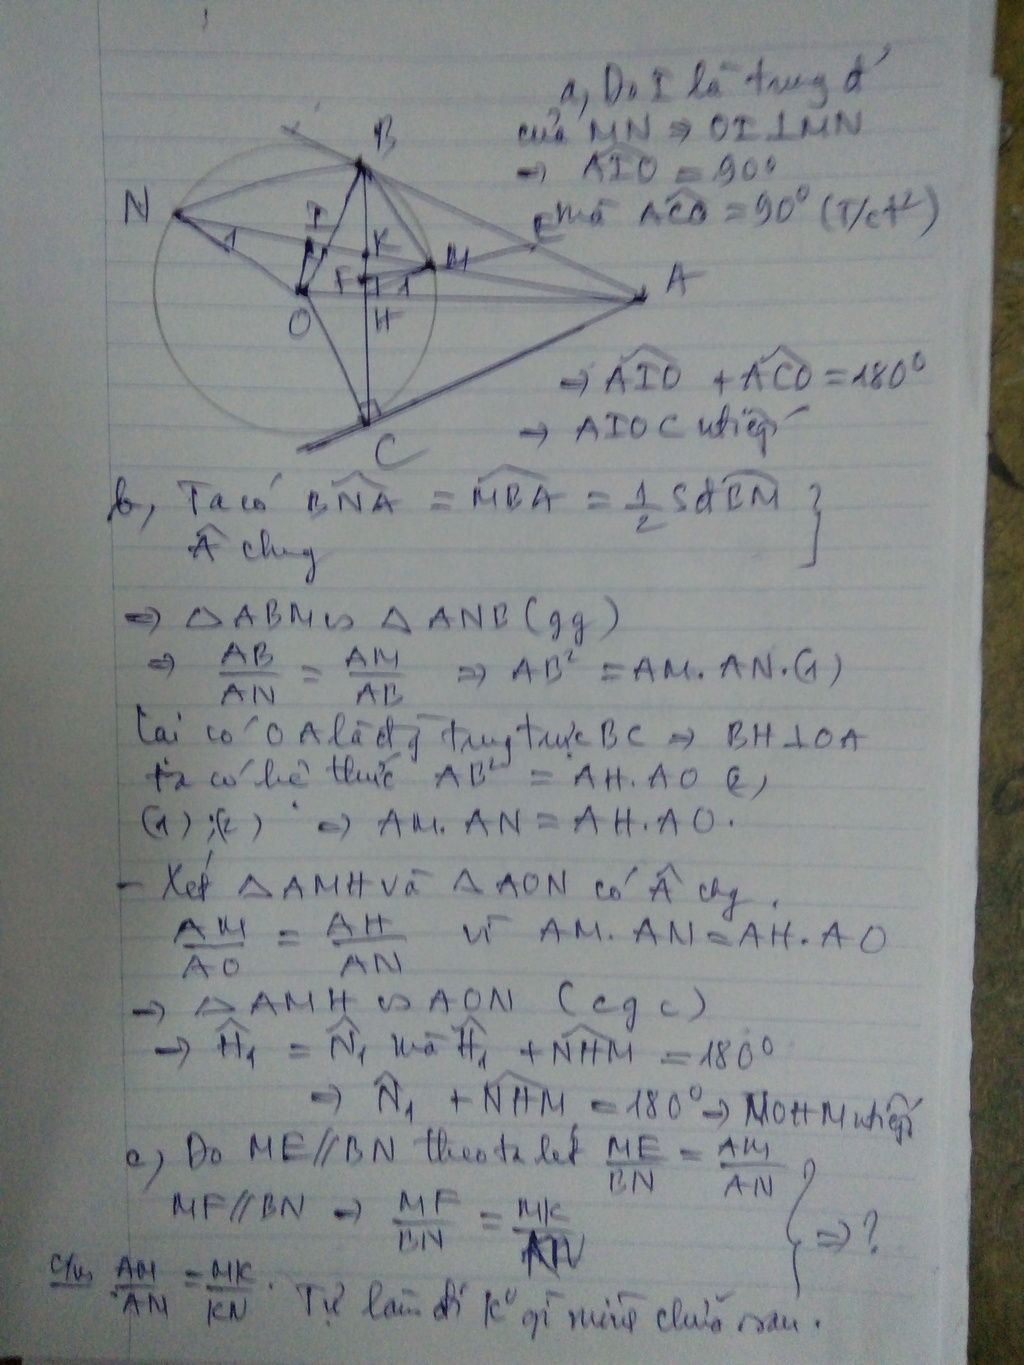 a, Do I là trung đ'
của MN ⇒ OI⊥MN
→ AIO = 90⁰
mà ACO = 90⁰ (T/c t²)
B
N
I
E
1
K
M
A
F
1
O
H
C
⇒ AIO + ACO = 180⁰
→ AIOC ntiếp
b, Ta có BNA = MBA = 1/2 Sđ BM }
Â chung
⇒ △ABM ∽ △ANB (gg)
⇒ AB/AN = AM/AB ⇒ AB² = AM. AN. (1)
Lại có OA là đg trung trực BC ⇒ BH⊥OA
ta có hệ thức AB² = AH. AO (2)
(1) ; (2) ⇒ AM. AN = AH. AO.
- Xét △AMH và △AON có Â chg.
AM/AO = AH/AN vì AM. AN = AH. AO
→ △AMH ∽ AON (cgc)
→ Ĥ₁ = N̂₁ mà Ĥ₁ + NHM = 180⁰
⇒ N̂₁ + NHM = 180⁰ → NOHM ntiếp
c) Do ME//BN theo ta lét ME/BN = AM/AN
MF//BN → MF/BN = MK/KN } ⇒ ?
C/m AM/AN = MK/KN. Tự làm đi K° gì mình chữa sau.